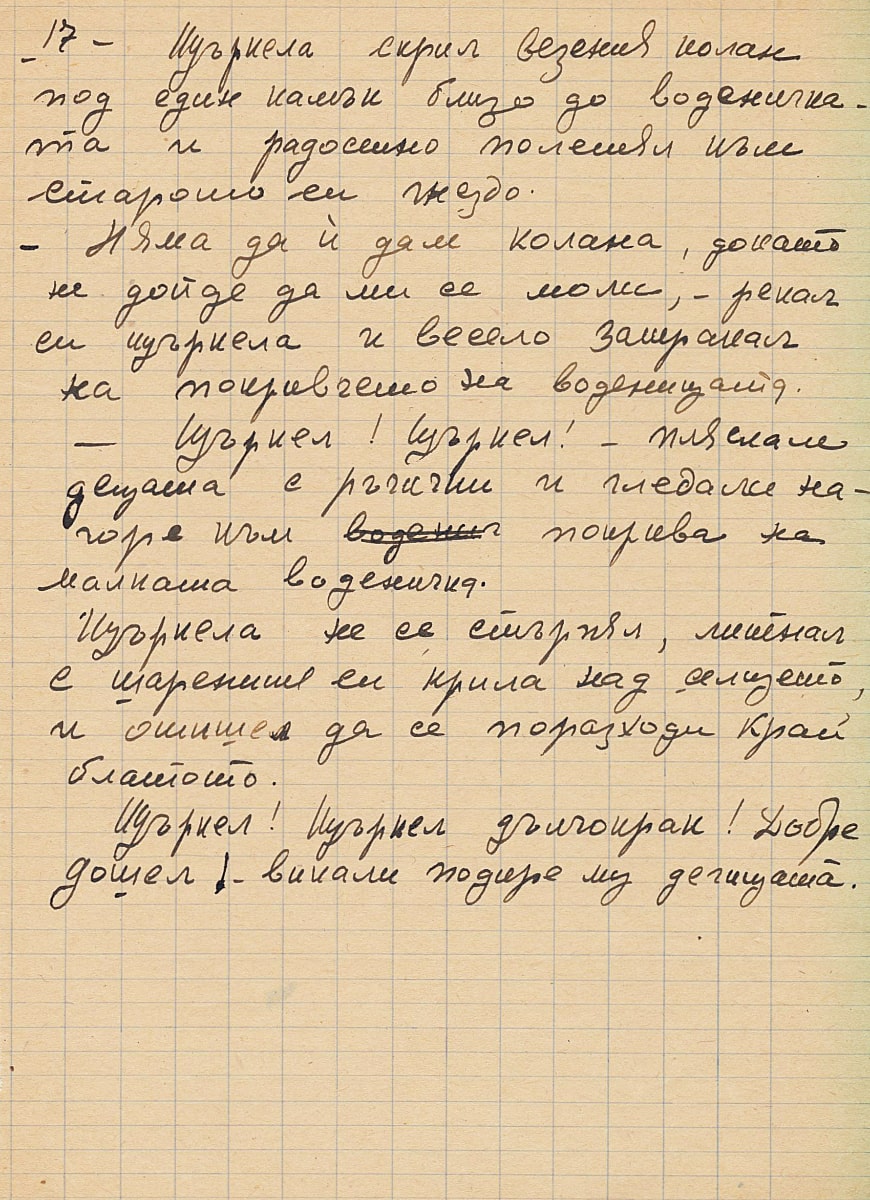 - 17 - Щъркела скрил везения колан
под един камък близо до воденичка-
та и радостно полетял към
старото си гнездо.
- Няма да ѝ дам колана, докато
не дойде да ми се моли, - рекал
си щъркела и весело затракал
на покривчето на воденицата.
- Щъркел! Щъркел! - пляскали
децата с ръчички и гледали на-
горе към воденич покрива на
малката воденичка.
Щъркела не се стърпял, литнал
с шарените си крила над селцето,
и отишел да се поразходи край
блатото.
Щъркел! Щъркел дългокрак! Добре
дошел! - викали подире му дечицата.